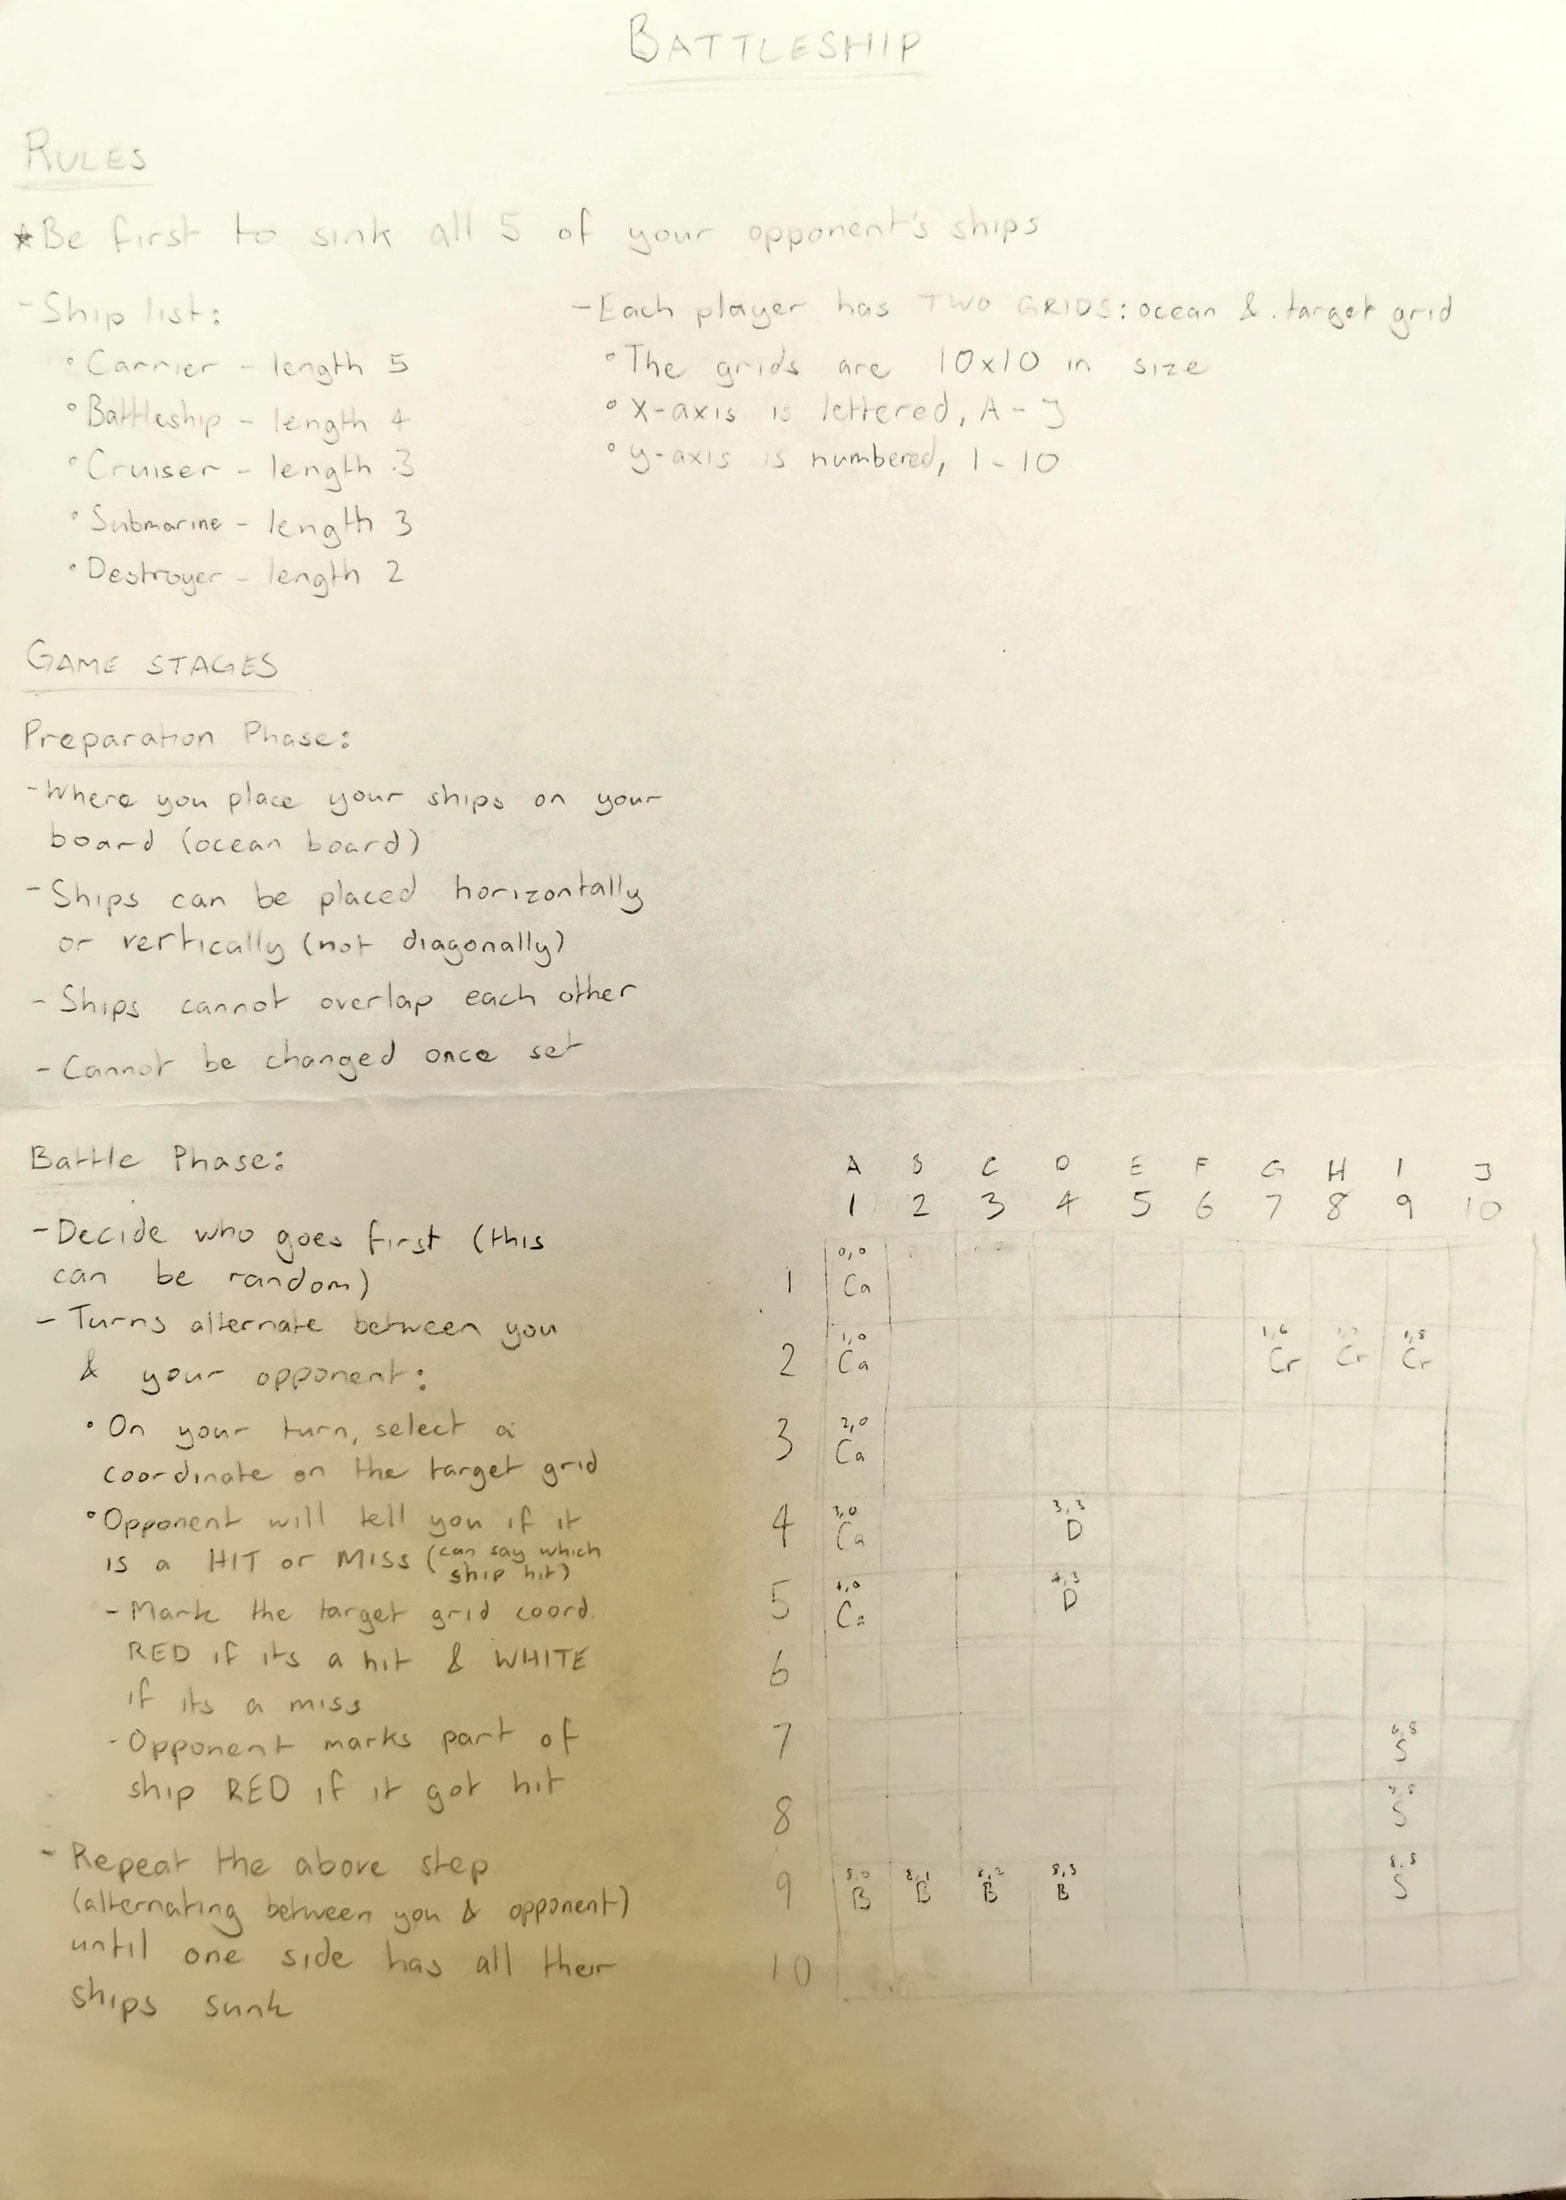 BATTLESHIP
RULES
*Be first to sink all 5 of your opponent's ships
- Ship list:
° Carrier - length 5
° Battleship - length 4
° Cruiser - length 3
° Submarine - length 3
° Destroyer - length 2
- Each player has TWO GRIDS: ocean & target grid
° The grids are 10x10 in size
° X-axis is lettered, A - J
° y-axis is numbered, 1 - 10
GAME STAGES
Preparation Phase:
- Where you place your ships on your
board (ocean board)
- Ships can be placed horizontally
or vertically (not diagonally)
- Ships cannot overlap each other
- Cannot be changed once set
Battle Phase:
- Decide who goes first (this
can be random)
- Turns alternate between you
& your opponent:
• On your turn, select a
coordinate on the target grid
• Opponent will tell you if it
is a HIT or MISS (can say which
ship hit)
- Mark the target grid coord.
RED if its a hit & WHITE
if its a miss
- Opponent marks part of
ship RED if it got hit
- Repeat the above step
(alternating between you & opponent)
until one side has all their
ships sunk
A B C D E F G H I J
1 2 3 4 5 6 7 8 9 10
0,0
1 Ca
1,0 1,6 1,7 1,8
2 Ca Cr Cr Cr
2,0
3 Ca
3,0 3,3
4 Ca D
4,0 4,3
5 Ca D
6
6,8
7 S
7,8
8 S
8,0 8,1 8,2 8,3 8,8
9 B B B B S
10